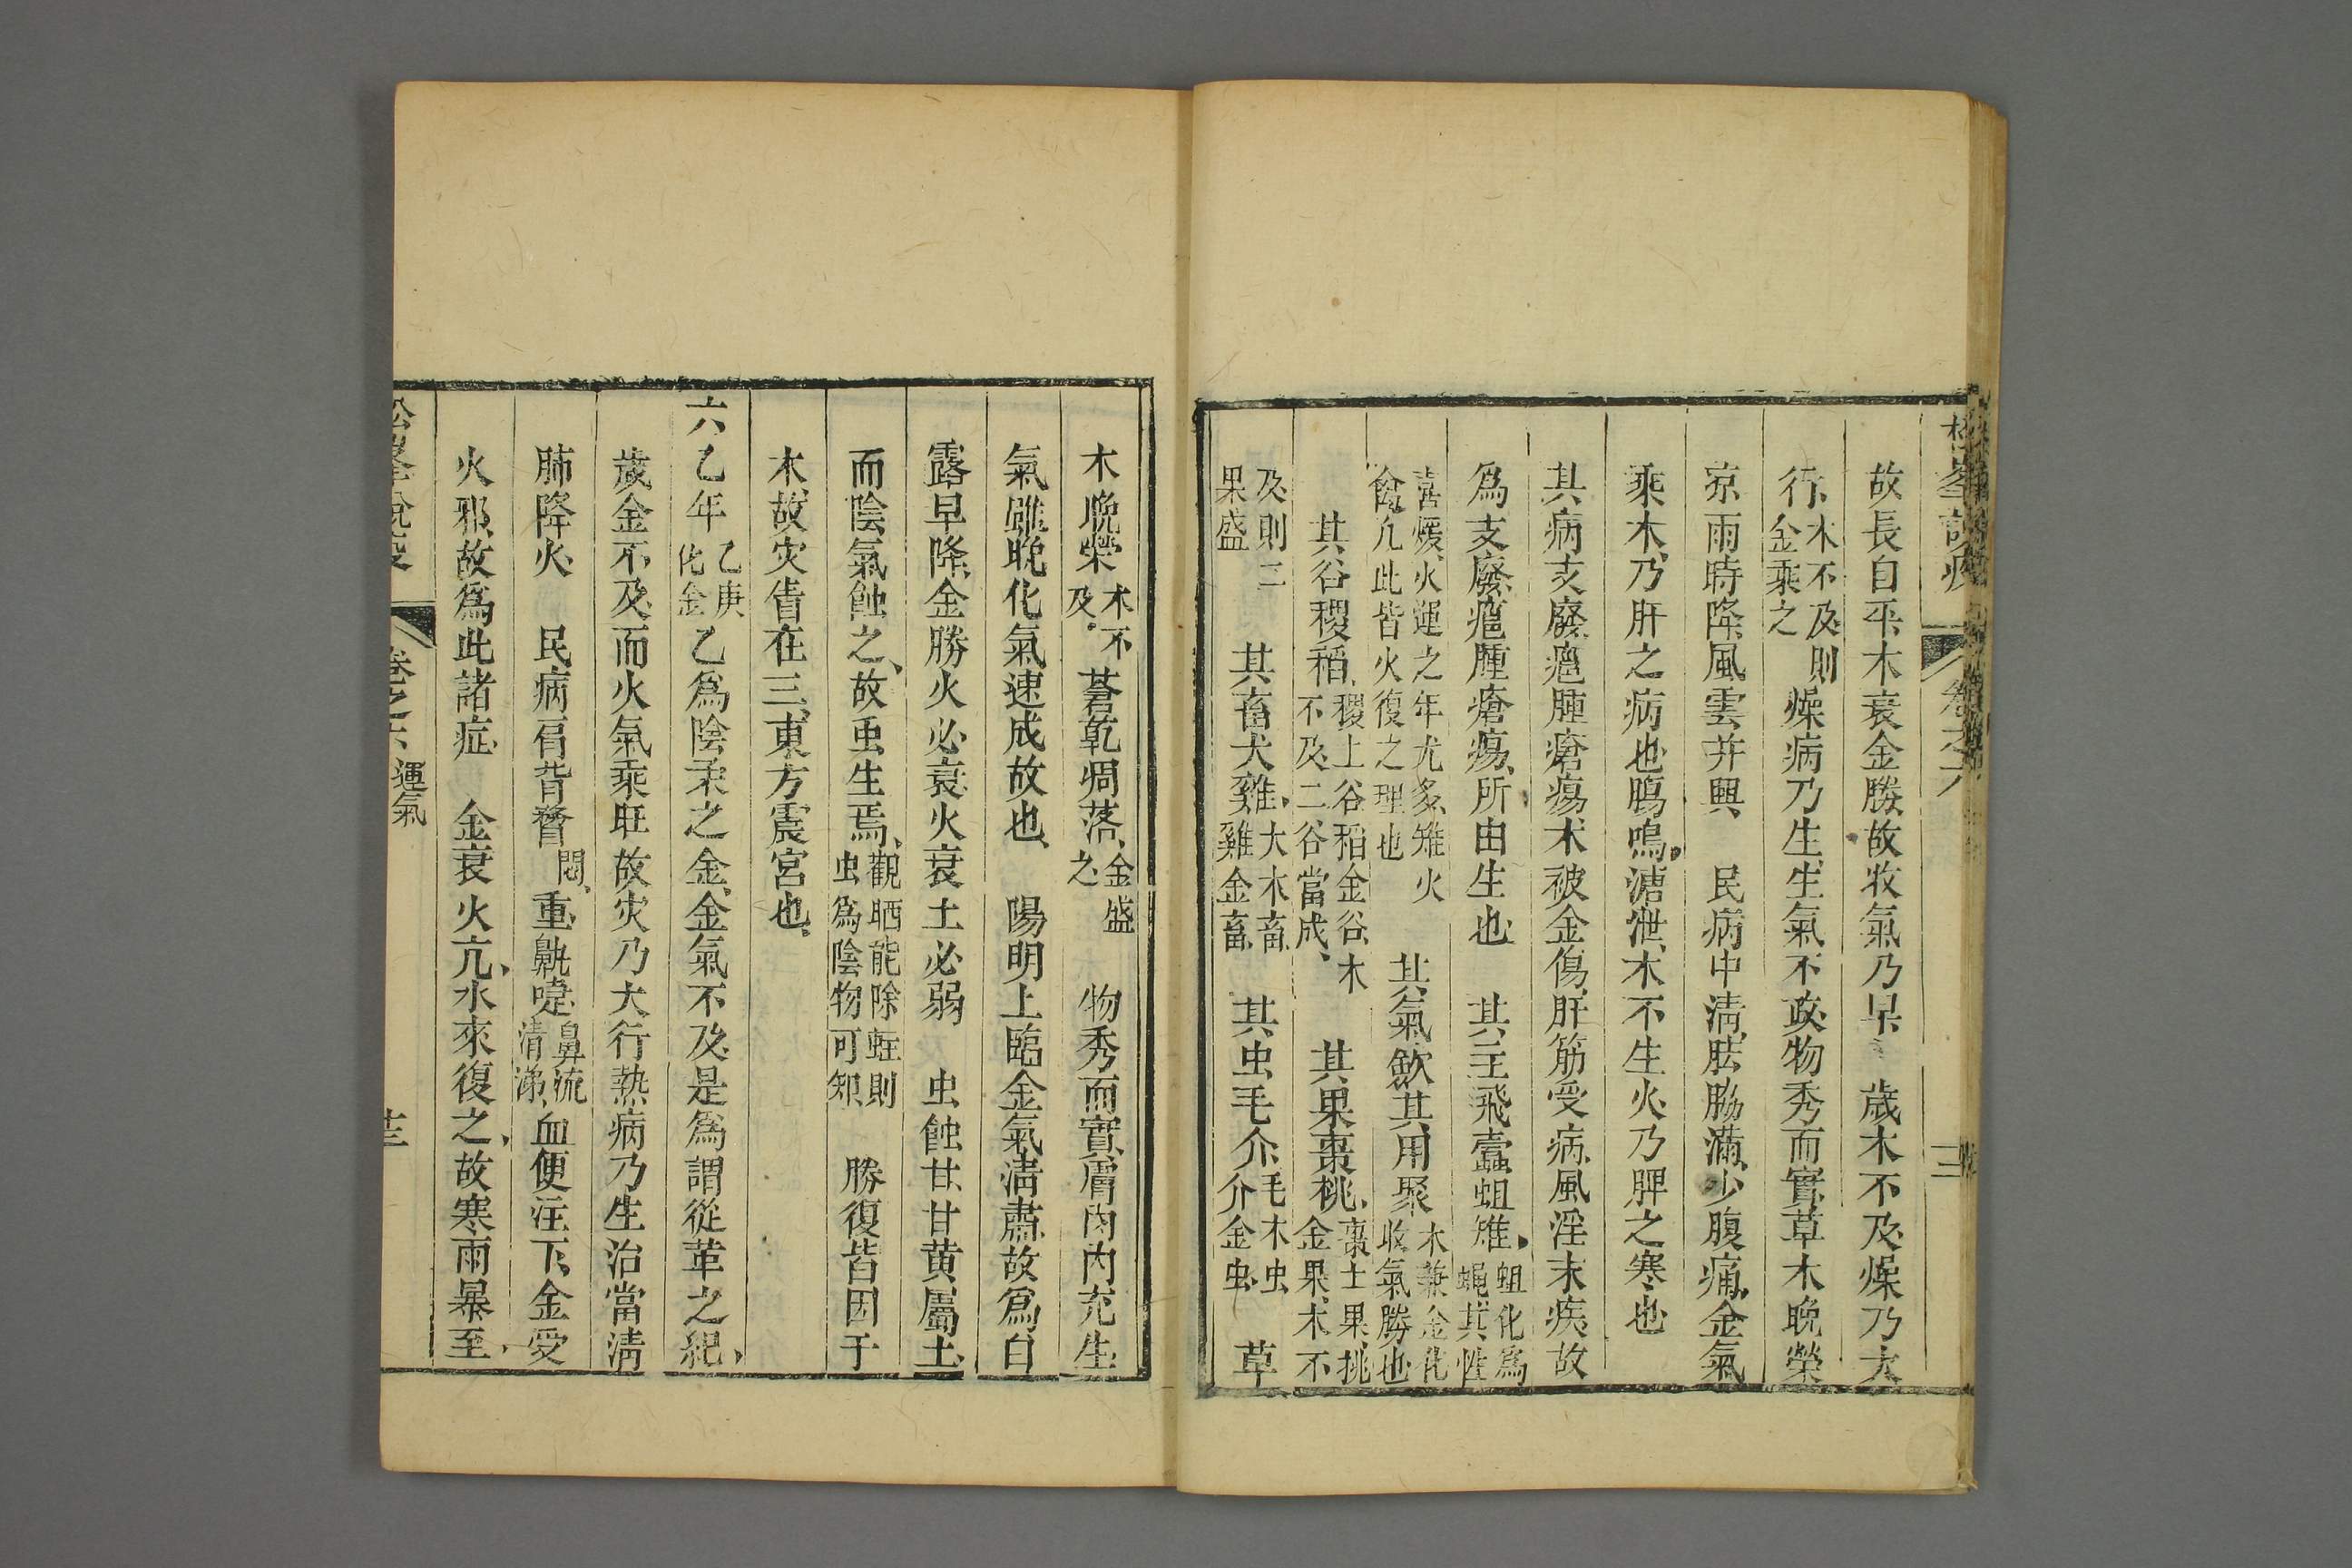 松峯說疫 卷之六
故長自平木衰金勝故收氣乃早 歲木不及燥乃大
行木不及則金乘之燥病乃生生氣不政物秀而實草木晚榮
凉雨時降風雲并興 民病中淸胠脇滿少腹痛金氣
乘木乃肝之病也鶡鳴溏泄木不生火乃脾之寒也
其病支廢癰腫瘡瘍木被金傷肝筋受病風淫末疾故
爲支廢癰腫瘡瘍所由生也 其主飛蠹蛆雉蛆化爲蝇其性
喜煖火運之年尤多雉火禽凡此皆火復之理也 其氣歛其用聚木兼金化收氣勝也
其谷稷稻稷上谷稻金谷木不及二谷當成 其果棗桃棗土果桃金果木不
及則二果盛 其畜犬雞犬木畜雞金畜 其虫毛介毛木虫介金虫 草
木晚榮木不及 蒼乾凋落金盛之 物秀而實膚肉内充生
氣雖晚化氣速成故也 陽明上臨金氣淸肅故爲白
露早降金勝火必衰火衰土必弱 虫蝕甘甘黄屬土
而陰氣蝕之故虫生焉觀晒能除蛀則虫爲陰物可知 勝復皆因于
木故灾眚在三東方震宮也
六乙年乙庚化金 乙爲陰柔之金金氣不及是爲謂從革之紀
歲金不及而火氣乘旺故灾乃大行熱病乃生治當淸
肺降火 民病肩背瞀悶重鼽嚏鼻流清涕血便注下金受
火邪故爲此諸症 金衰火亢水來復之故寒雨暴至
松峯說疫 卷之六 運氣